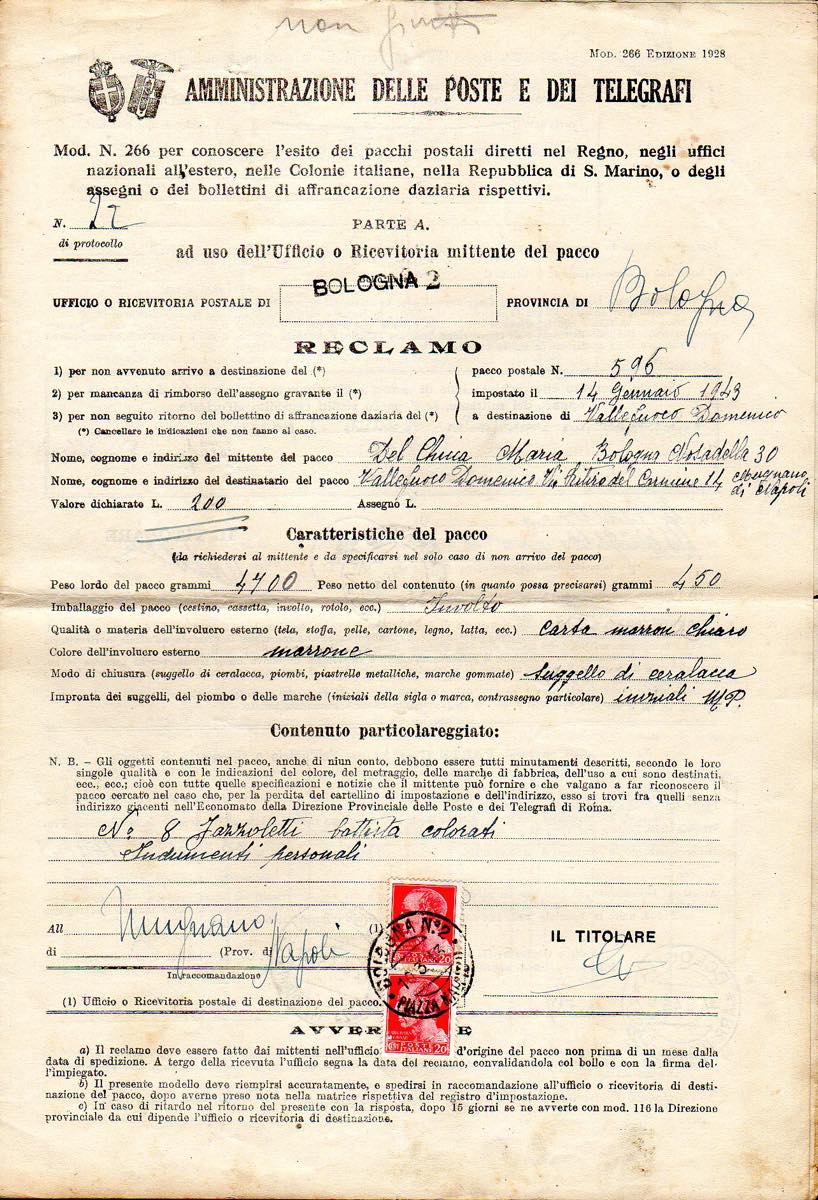 non
MOD. 266 EDIZIONE 1928
AMMINISTRAZIONE DELLE POSTE E DEI TELEGRAFI
Mod. N. 266 per conoscere l'esito dei pacchi postali diretti nel Regno, negli uffici
nazionali all'estero, nelle Colonie italiane, nella Repubblica di S. Marino, o degli
assegni o dei bollettini di affrancazione daziaria rispettivi.
N.
di protocollo
PARTE A.
ad uso dell'Ufficio o Ricevitoria mittente del pacco
UFFICIO O RICEVITORIA POSTALE DI BOLOGNA 2 PROVINCIA DI Bologna
RECLAMO
1) per non avvenuto arrivo a destinazione del (*) pacco postale N. 596
2) per mancanza di rimborso dell'assegno gravante il (*) impostato il 14 Gennaio 1943
3) per non seguito ritorno del bollettino di affrancazione daziaria del (*) a destinazione di Vallefuoco Domenico
(*) Cancellare le indicazioni che non fanno al caso.
Nome, cognome e indirizzo del mittente del pacco Del China Maria Bologna Nosadella 30
Nome, cognome e indirizzo del destinatario del pacco Vallefuoco Domenico Via Ritiro del Carmine 14 Mugnano di Napoli
Valore dichiarato L. 200 Assegno L.
Caratteristiche del pacco
(da richiedersi al mittente e da specificarsi nel solo caso di non arrivo del pacco)
Peso lordo del pacco grammi 4700 Peso netto del contenuto (in quanto possa precisarsi) grammi 450
Imballaggio del pacco (cestino, cassetta, involto, rotolo, ecc.) Involto
Qualità o materia dell'involucro esterno (tela, stoffa, pelle, cartone, legno, latta, ecc.) carta marron chiaro
Colore dell'involucro esterno marrone
Modo di chiusura (suggello di ceralacca, piombi, piastrelle metalliche, marche gommate) suggello di ceralacca
Impronta dei suggelli, del piombo o delle marche (iniziali della sigla o marca, contrassegno particolare) inziali M.P.
Contenuto particolareggiato:
N. B. - Gli oggetti contenuti nel pacco, anche di niun conto, debbono essere tutti minutamenti descritti, secondo le loro
singole qualità e con le indicazioni del colore, del metraggio, delle marche di fabbrica, dell'uso a cui sono destinati,
ecc., ecc.; cioè con tutte quelle specificazioni e notizie che il mittente può fornire e che valgano a far riconoscere il
pacco cercato nel caso che, per la perdita del cartellino di impostazione e dell'indirizzo, esso si trovi fra quelli senza
indirizzo giacenti nell'Economato della Direzione Provinciale delle Poste e dei Telegrafi di Roma.
No 8 Fazzoletti battista colorati
Indumenti personali
All Mugnano (1)
di (Prov. di Napoli
In raccomandazione
IL TITOLARE
(1) Ufficio o Ricevitoria postale di destinazione del pacco.
BOLOGNA N.2
PIAZZA
POSTE ITALIANE 20
AVVER E
a) Il reclamo deve essere fatto dai mittenti nell'uffici d'origine del pacco non prima di un mese dalla
data di spedizione. A tergo della ricevuta l'ufficio segna la data del reclamo, convalidandola col bollo e con la firma del-
l'impiegato.
b) Il presente modello deve riempirsi accuratamente, e spedirsi in raccomandazione all'ufficio o ricevitoria di desti-
nazione del pacco, dopo averne preso nota nella matrice rispettiva del registro d'impostazione.
c) In caso di ritardo nel ritorno del presente con la risposta, dopo 15 giorni se ne avverte con mod. 116 la Direzione
provinciale da cui dipende l'ufficio o ricevitoria di destinazione.